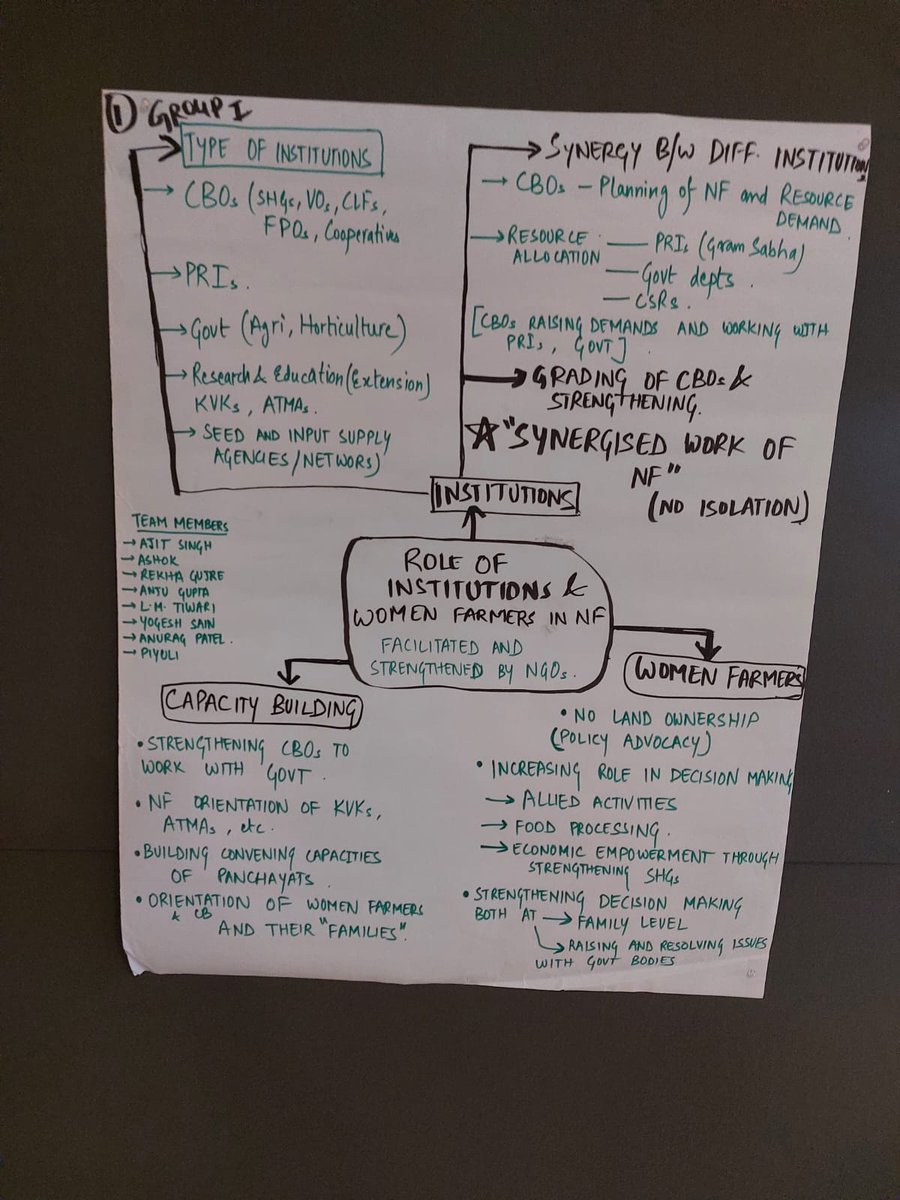 ① GROUP I
TYPE OF INSTITUTIONS
→ CBOs (SHGs, VOs, CLFs,
FPOs, Cooperatives
→ PRIs.
→ Govt (Agri, Horticulture)
→ Research & Education (Extension)
KVKs, ATMAs.
→ SEED AND INPUT SUPPLY
AGENCIES/NETWORS)
→ SYNERGY B/W DIFF. INSTITUTION
→ CBOs - Planning of NF and RESOURCE
DEMAND.
→ RESOURCE — PRIs (Gram Sabha)
ALLOCATION — Govt depts.
— CSRs.
[CBOs RAISING DEMANDS AND WORKING WITH
PRIs, GOVT].
→ GRADING OF CBOs &
STRENGTHENING.
☆ "SYNERGISED WORK OF
NF"
(NO ISOLATION)
INSTITUTIONS
TEAM MEMBERS
→ AJIT SINGH
→ ASHOK
→ REKHA
→ ANJU GUPTA
→ L.M. TIWARI
→ YOGESH SAIN
→ ANURAG PATEL.
→ PIYOLI
ROLE OF
INSTITUTIONS &
WOMEN FARMERS IN NF
FACILITATED AND
STRENGTHENED BY NGOs.
CAPACITY BUILDING
• STRENGTHENING CBOs TO
WORK WITH GOVT.
• NF ORIENTATION OF KVKs,
ATMAs, etc.
• BUILDING CONVENING CAPACITIES
OF PANCHAYATS.
• ORIENTATION OF WOMEN FARMERS
& CB AND THEIR "FAMILIES".
WOMEN FARMERS
• NO LAND OWNERSHIP
(POLICY ADVOCACY)
• INCREASING ROLE IN DECISION MAKING
→ ALLIED ACTIVITIES
→ FOOD PROCESSING.
→ ECONOMIC EMPOWERMENT THROUGH
STRENGTHENING SHGs
• STRENGTHENING DECISION MAKING
BOTH AT → FAMILY LEVEL
→ RAISING AND RESOLVING ISSUES
WITH GOVT BODIES